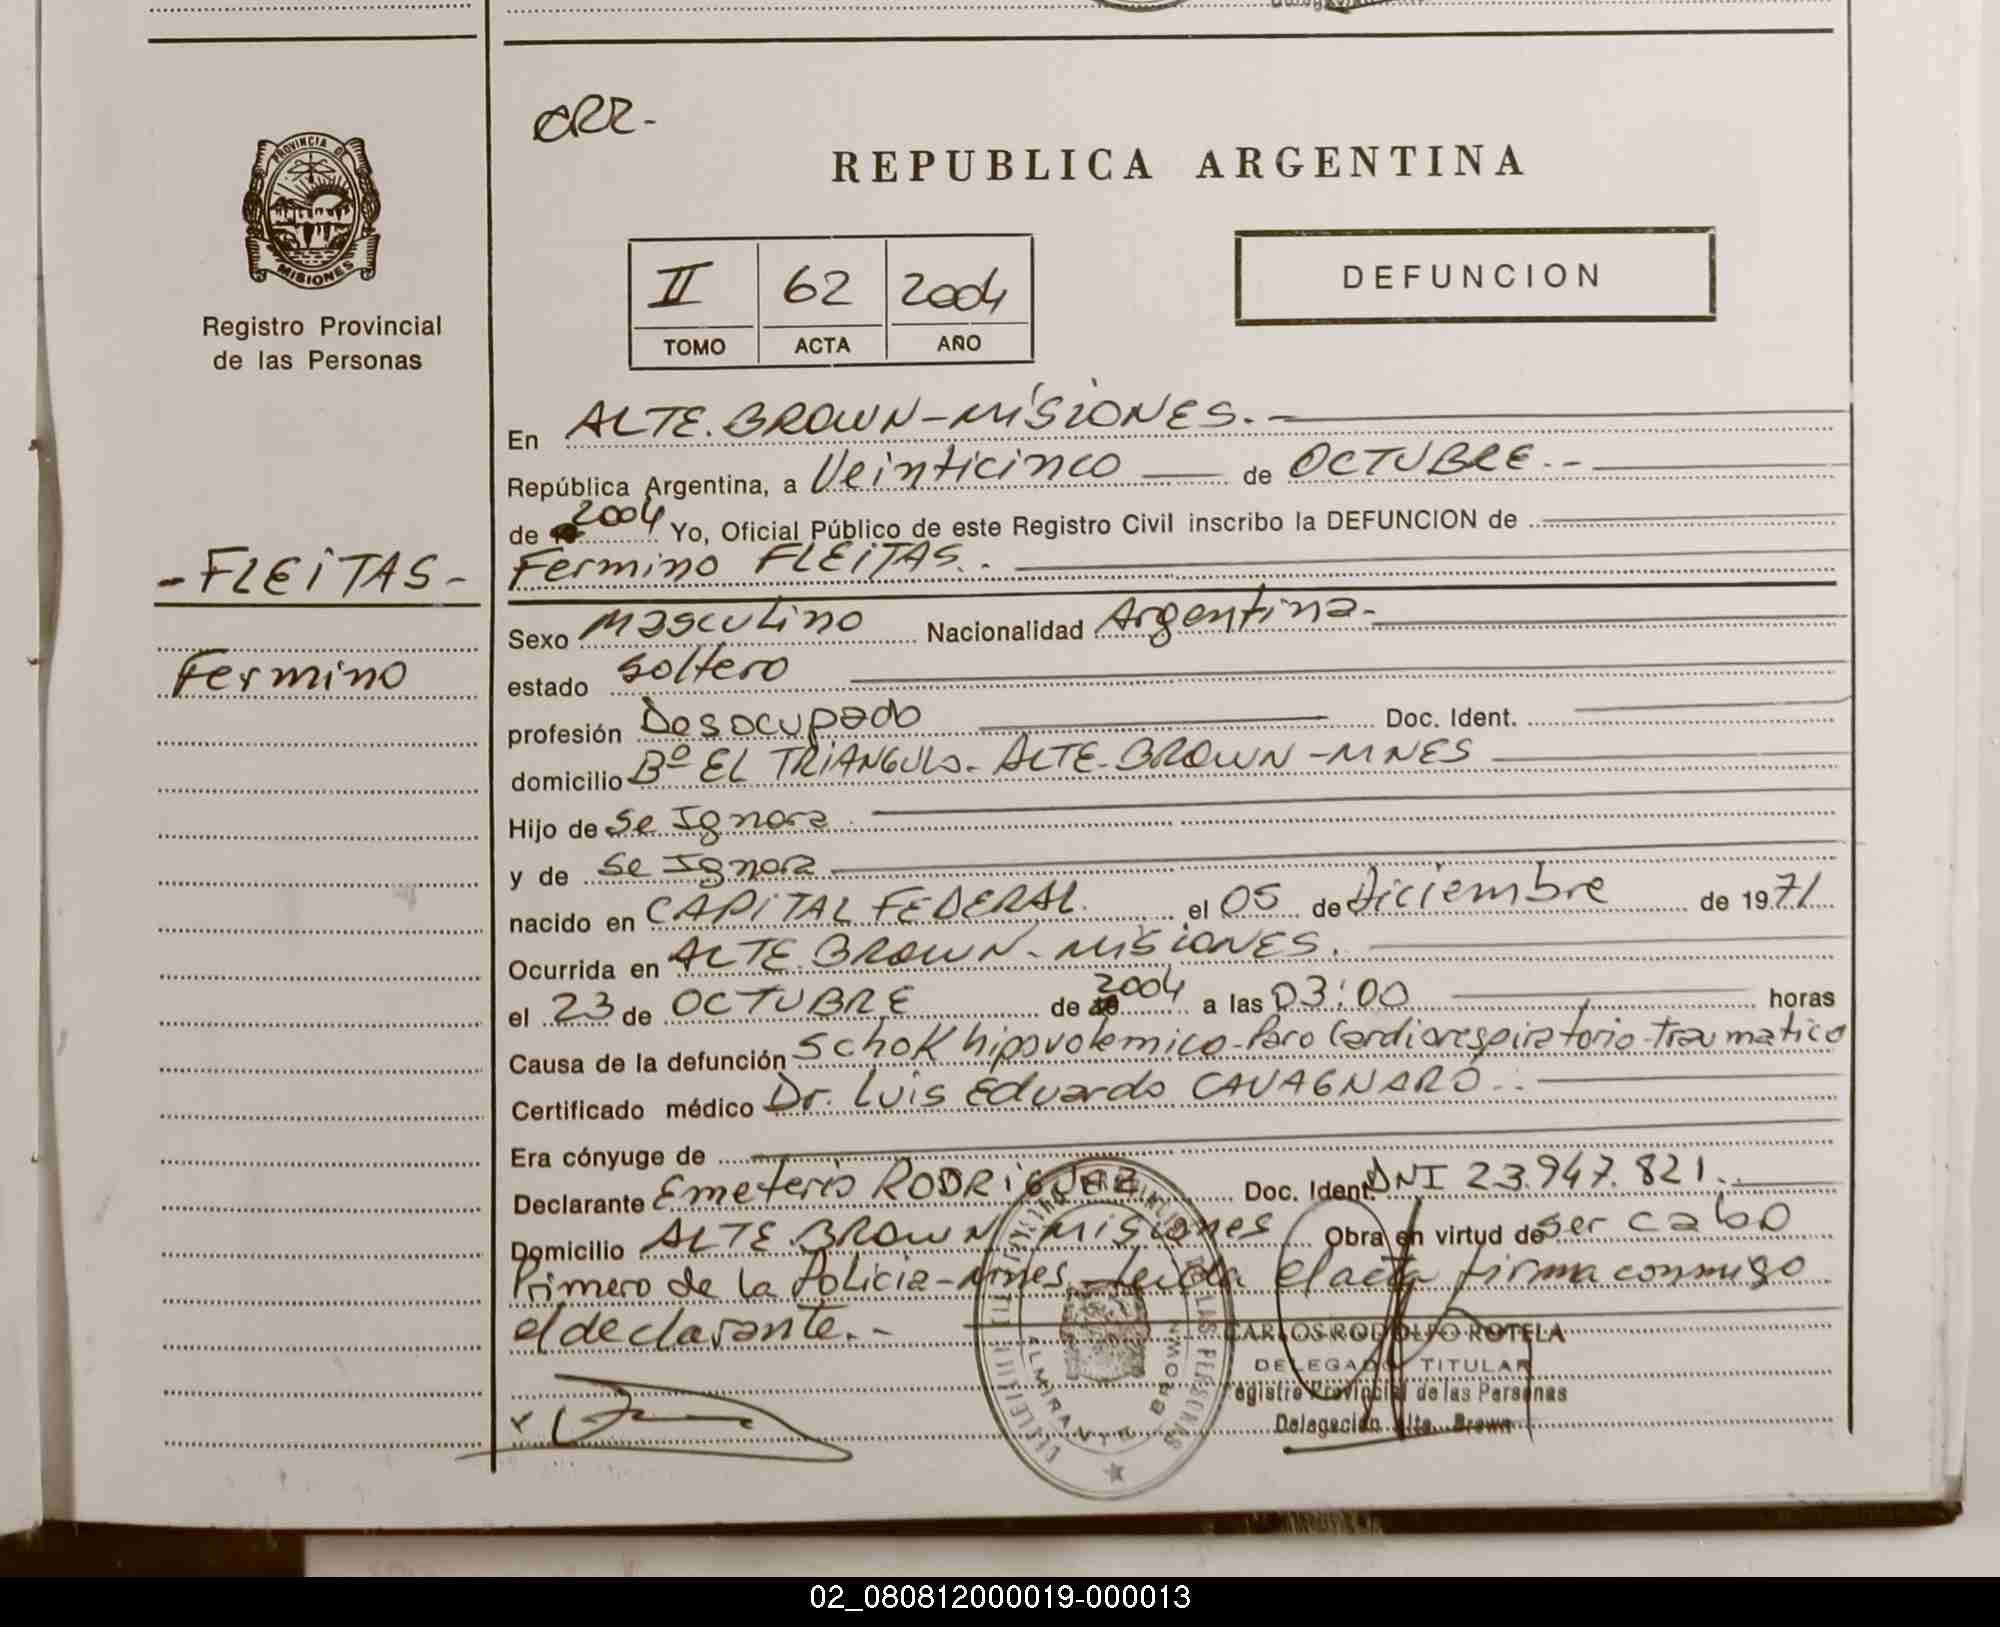 CRR-
PROVINCIA DE
MISIONES
Registro Provincial
de las Personas
REPUBLICA ARGENTINA
II 62 2004
TOMO ACTA AÑO
DEFUNCION
En ALTE. BROWN-MISIONES.-
República Argentina, a Veinticinco de OCTUBRE.-
de 2004 Yo, Oficial Público de este Registro Civil inscribo la DEFUNCION de
-FLEITAS-
Fermino FLEITAS.-
Sexo Masculino Nacionalidad Argentina-
Fermino
estado Soltero
profesión Desocupado Doc. Ident.
domicilio Bº EL TRIANGULO- ALTE. BROWN-MNES
Hijo de Se Ignora
y de Se Ignora
nacido en CAPITAL FEDERAL. el 05 de Diciembre de 1971
Ocurrida en ALTE. BROWN- MISIONES.
el 23 de OCTUBRE de 2004 a las 03:00 horas
Causa de la defunción Schok hipovolemico-Paro Cardiorespiratorio-traumatico
Certificado médico Dr. Luis Eduardo CAVAGNARO.-
Era cónyuge de
Declarante Emeterio RODRIGUEZ Doc. Ident. DNI 23.947.821.
Domicilio ALTE. BROWN Misiones Obra en virtud de ser cabo
Primero de la Policia-Mnes. Leida el acta firma conmigo
el declarante.-
CARLOS RODOLFO ROTELA
DELEGADO TITULAR
Registro Provincial de las Personas
Delegación Alte. Brown
PROVINCIAL DE LAS PERSONAS
ALMIRANTE BROWN
02_080812000019-000013